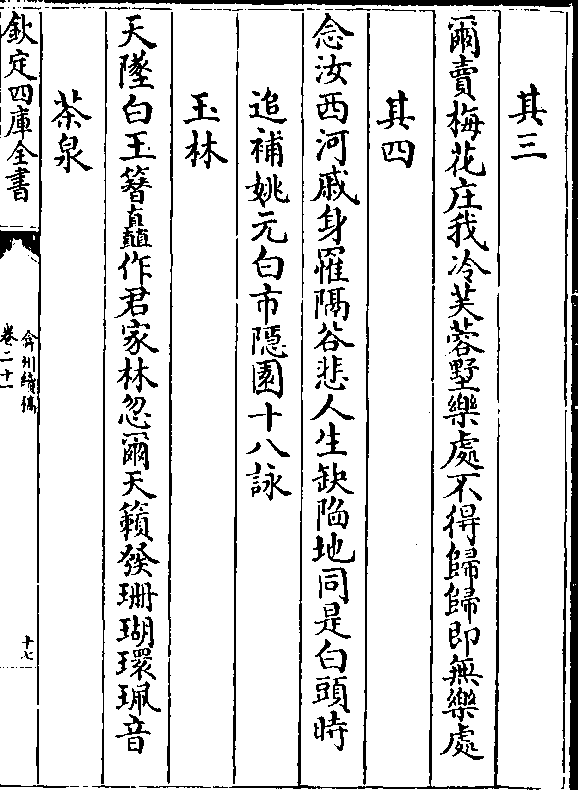 其三
爾賣梅花庄我冷芙蓉墅樂處不得歸歸即無樂處
其四
念汝西河戚身罹隔谷悲人生缺陷地同是白頭時
追補姚元白市隱園十八詠
玉林
天墜白玉簪矗作君家林忽爾天籟發珊瑚環珮音
茶泉
欽定四庫全書
弇州續稿
卷二十一
十七